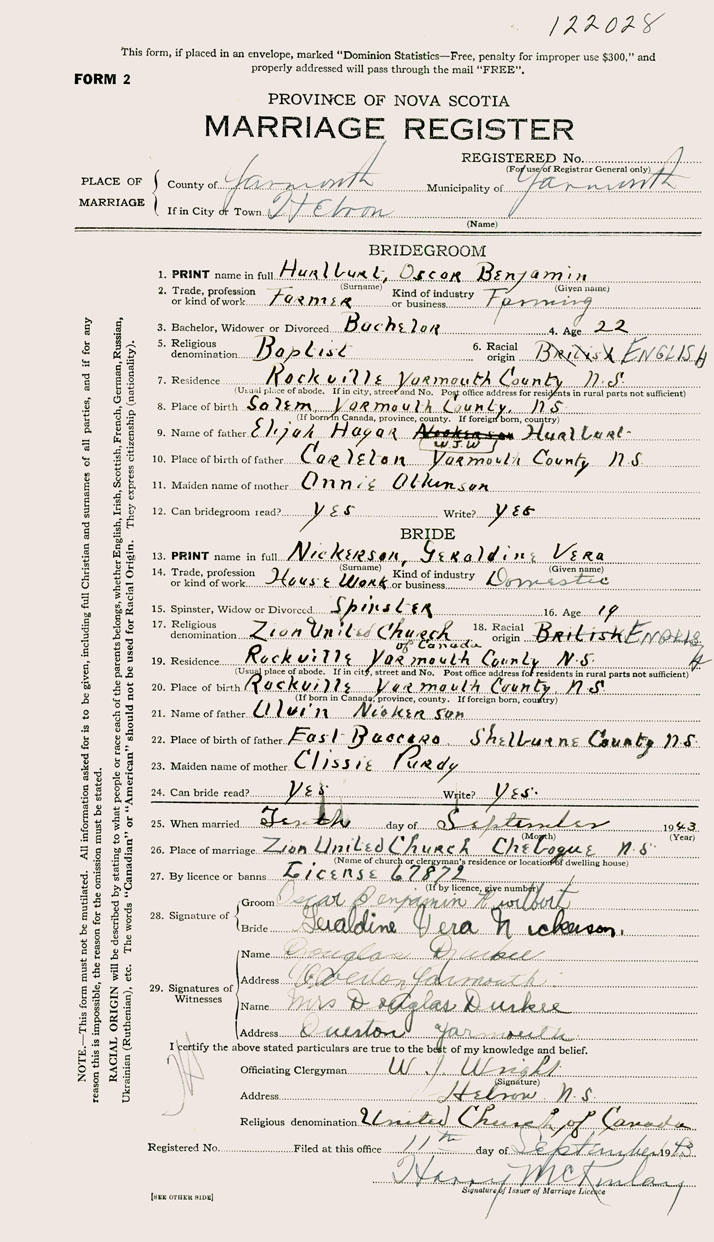 122028
This form, if placed in an envelope, marked "Dominion Statistics—Free, penalty for improper use $300," and
properly addressed will pass through the mail "FREE".
FORM 2
PROVINCE OF NOVA SCOTIA
MARRIAGE REGISTER
REGISTERED No.
(For use of Registrar General only)
PLACE OF MARRIAGE
County of Yarmouth Municipality of Yarmouth
If in City or Town Hebron
(Name)
BRIDEGROOM
1. PRINT name in full Hurlburt, Oscar Benjamin
(Surname) (Given name)
2. Trade, profession or kind of work Farmer Kind of industry or business Farming
3. Bachelor, Widower or Divorced Bachelor 4. Age 22
5. Religious denomination Baptist 6. Racial origin British ENGLISH
7. Residence Rockville Yarmouth County N.S.
(Usual place of abode. If in city, street and No. Post office address for residents in rural parts not sufficient)
8. Place of birth Salem, Yarmouth County. N.S
(If born in Canada, province, county. If foreign born, country)
9. Name of father Elijah Hagar Nickerson Hurlburt
W.J.W
10. Place of birth of father Carleton Yarmouth County N.S
11. Maiden name of mother Annie Atkinson
12. Can bridegroom read? YES Write? YES
BRIDE
13. PRINT name in full Nickerson, Geraldine Vera
(Surname) (Given name)
14. Trade, profession or kind of work House Work Kind of industry or business Domestic
15. Spinster, Widow or Divorced Spinster 16. Age 19
17. Religious denomination Zion United Church of Canada 18. Racial origin British ENGLISH
19. Residence Rockville Yarmouth County N.S.
(Usual place of abode. If in city, street and No. Post office address for residents in rural parts not sufficient)
20. Place of birth Rockville Yarmouth County N.S
(If born in Canada, province, county. If foreign born, country)
21. Name of father Alvin Nickerson
22. Place of birth of father East Baccaro Shelburne County N.S
23. Maiden name of mother Clissie Purdy
24. Can bride read? Yes Write? Yes.
25. When married Tenth day of September 1943
(Month) (Year)
26. Place of marriage Zion United Church Chebogue N.S
(Name of church or clergyman's residence or location of dwelling house)
27. By licence or banns License 67872
(If by licence, give number)
28. Signature of
Groom Oscar Benjamin Hurlburt
Bride Geraldine Vera Nickerson.
29. Signatures of Witnesses
Name Douglas Durkee
Address Overton Yarmouth
Name Mrs Douglas Durkee
Address Overton Yarmouth
I certify the above stated particulars are true to the best of my knowledge and belief.
Officiating Clergyman W. J. Wright
(Signature)
Address Hebron N.S.
Religious denomination United Church of Canada
Registered No. Filed at this office 11th day of September 1943
Harry McKinlay
Signature of Issuer of Marriage Licence
[SEE OTHER SIDE]
NOTE.—This form must not be mutilated. All information asked for is to be given, including full Christian and surnames of all parties, and if for any
reason this is impossible, the reason for the omission must be stated.
RACIAL ORIGIN will be described by stating to what people or race each of the parents belongs, whether English, Irish, Scottish, French, German, Russian,
Ukrainian (Ruthenian), etc. The words "Canadian" or "American" should not be used for Racial Origin. They express citizenship (nationality).